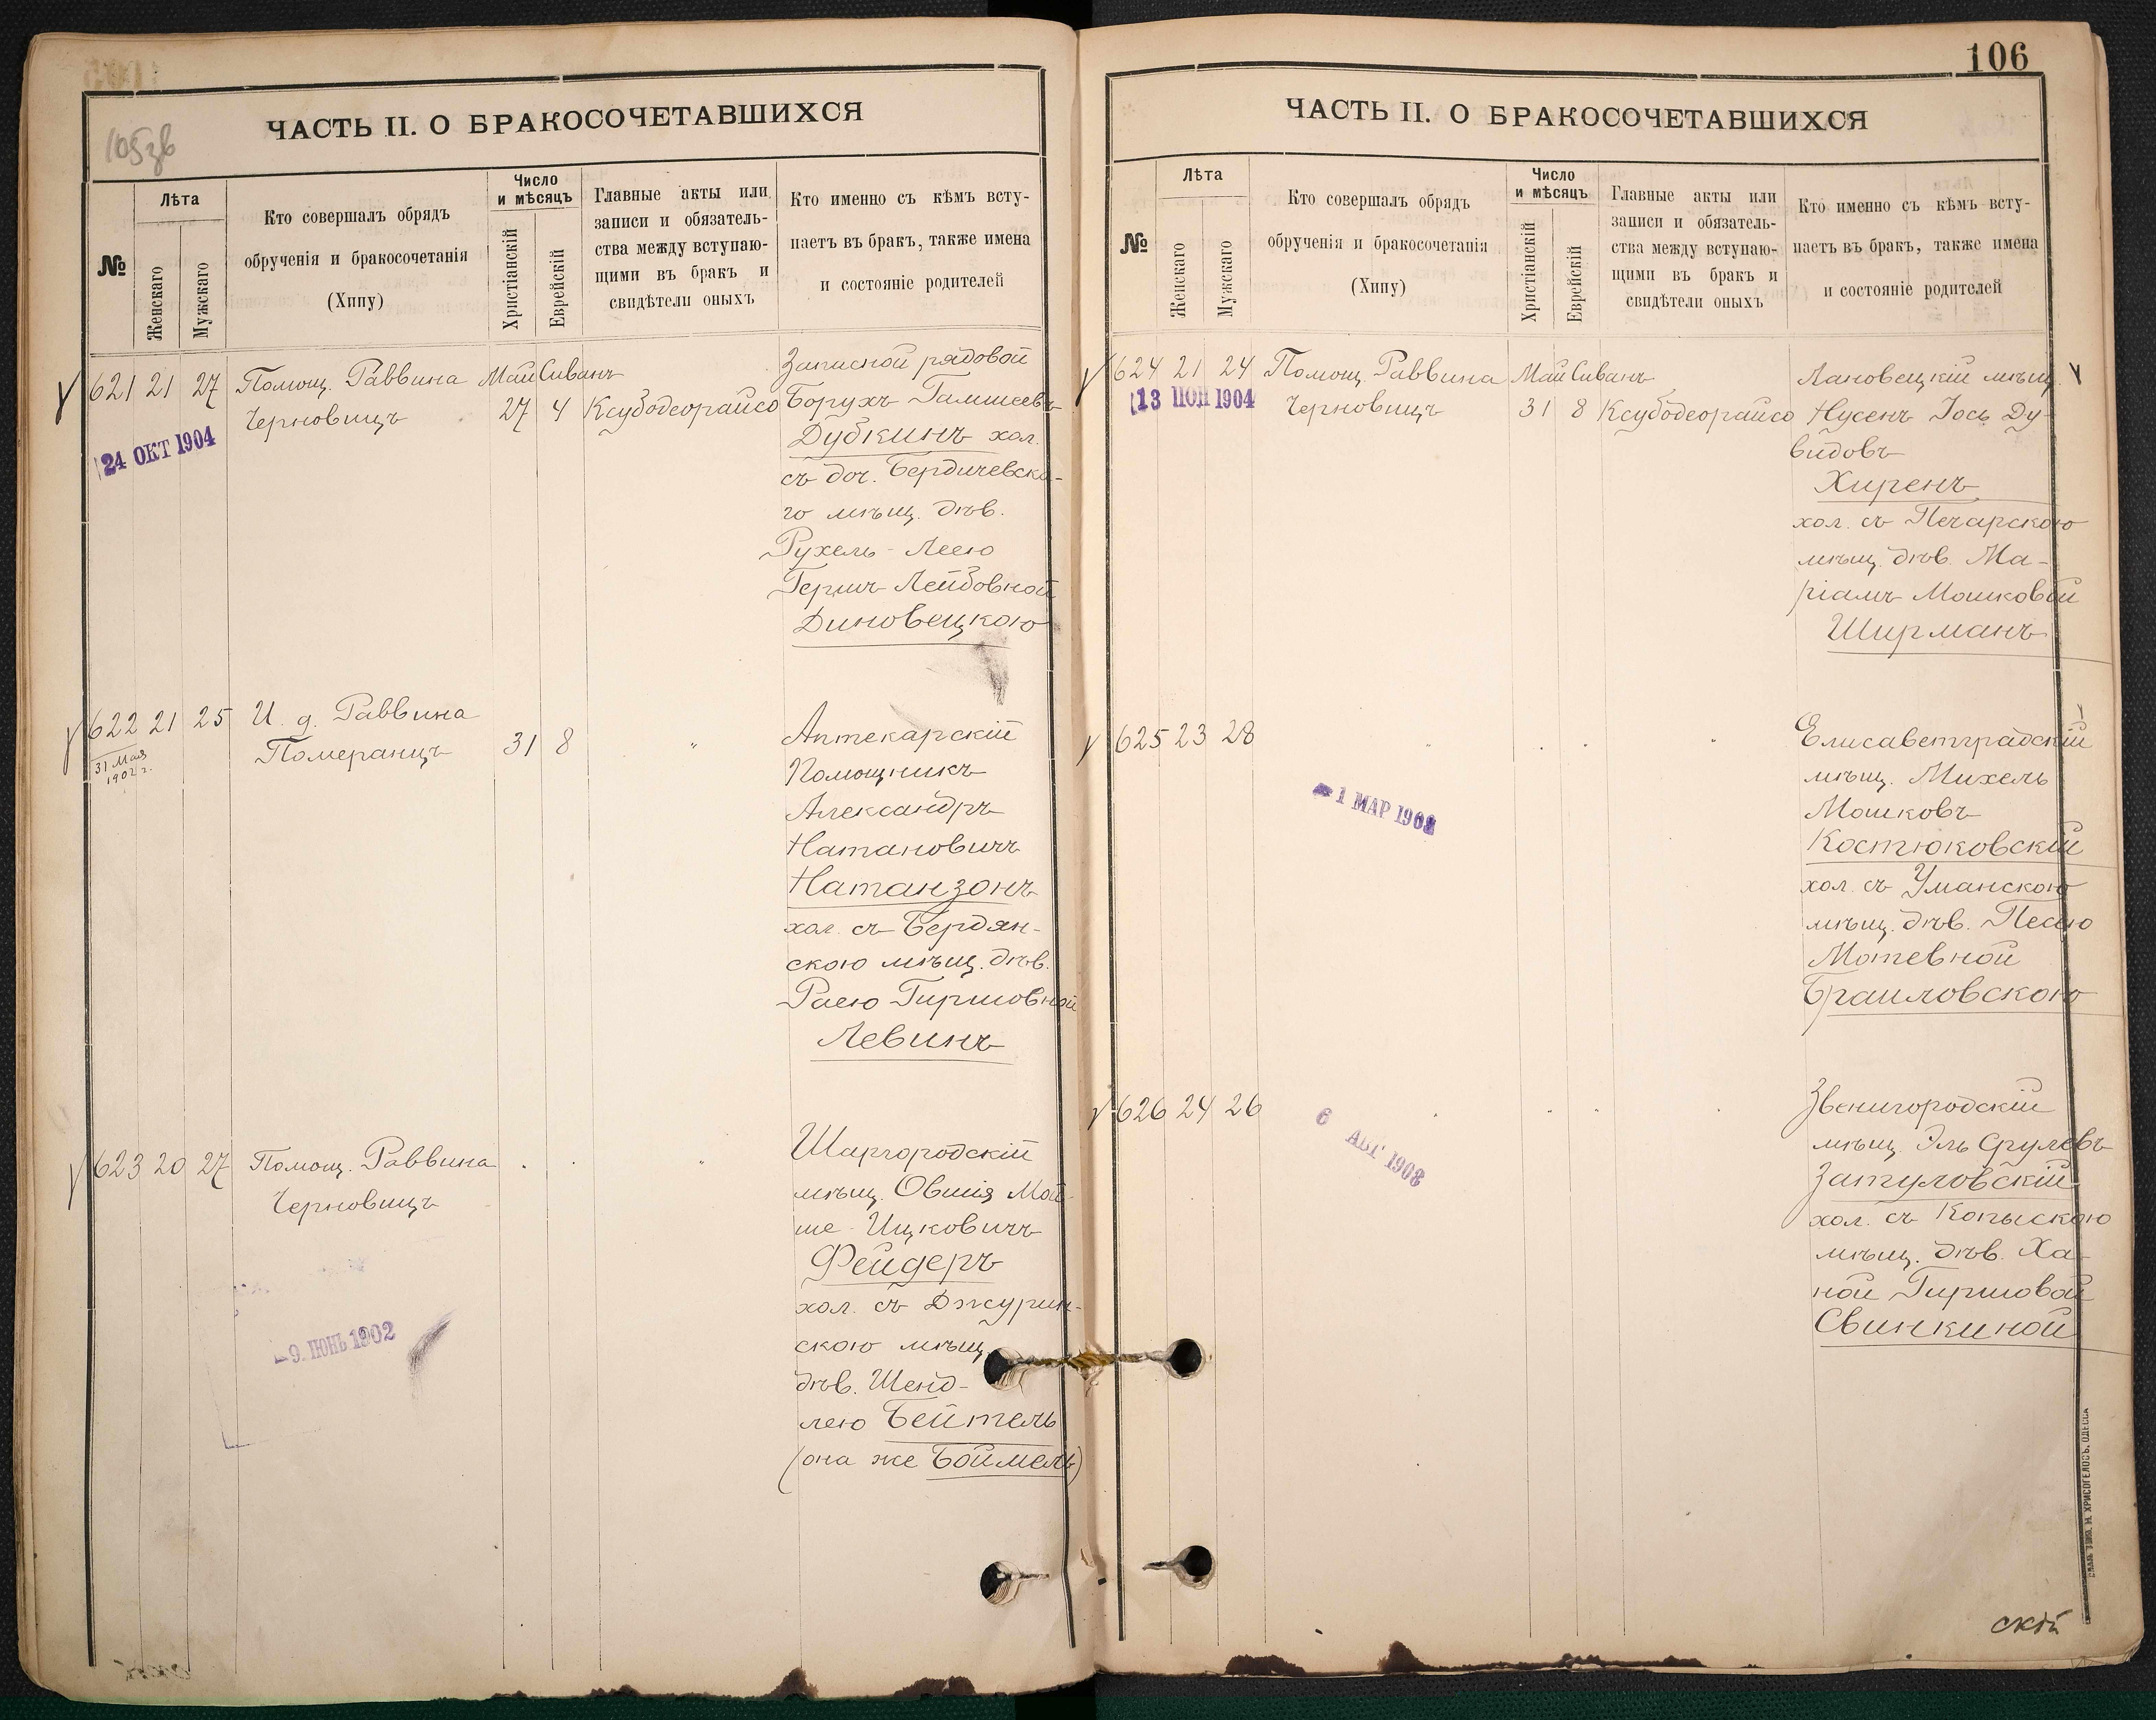 105зв
ЧАСТЬ II. О БРАКОСОЧЕТАВШИХСЯ
№
Лѣта
Женскаго
Мужскаго
Кто совершалъ обрядъ
обрученія и бракосочетанія
(Хипу)
Число
и мѣсяцъ
Христіанскій
Еврейскій
Главные акты или
записи и обязатель-
ства между вступаю-
щими въ бракъ и
свидѣтели оныхъ
Кто именно съ кѣмъ всту-
паетъ въ бракъ, также имена
и состояніе родителей
621 21 27 Помощ. Раввина Май Сиванъ
Черновицъ 27 4 Ксубодеорайсо
24 ОКТ 1904
Запасной рядовой
Борухъ
Дубкинъ хол.
съ доч. Бердичевска-
го мѣщ. дѣв.
Рухель-Леею
Гершъ-Лейбовной
Диновецкою
622 21 25 И. д. Раввина
Померанцъ 31 8 "
31 Мая
1902 г.
Аптекарскій
Помощникъ
Александръ
Натановичъ
Натанзонъ
хол. съ Бердян-
скою мѣщ. дѣв.
Раею Гиршовной
Левинъ
623 20 27 Помощ. Раввина " " "
Черновицъ
-9. ІЮНЬ 1902
Шаргородскій
мѣщ. Овшія Мой-
ше Ицковичъ
Фейдеръ
хол. съ Джурин-
скою мѣщ.
дѣв. Шенд-
лею Бейтель
(она же Боймель)
106
ЧАСТЬ II. О БРАКОСОЧЕТАВШИХСЯ
№
Лѣта
Женскаго
Мужскаго
Кто совершалъ обрядъ
обрученія и бракосочетанія
(Хипу)
Число
и мѣсяцъ
Христіанскій
Еврейскій
Главные акты или
записи и обязатель-
ства между вступаю-
щими въ бракъ и
свидѣтели оныхъ
Кто именно съ кѣмъ всту-
паетъ въ бракъ, также имена
и состояніе родителей
624 21 24 Помощ. Раввина Май Сиванъ
Черновицъ 31 8 Ксубодеорайсо
13 1904
Лановецкій мѣщ.
Нусенъ Іось Ду-
видовъ
Хиренъ
хол. съ Печарскою
мѣщ. дѣв. Ма-
ріамъ Мошковой
Ширманъ
625 23 28 " " " "
-1 МАР 1908
Елисаветградскій
мѣщ. Михель
Мошковъ
Костюковскій
хол. съ Уманскою
мѣщ. дѣв. Песею
Мотевной
Браиловскою
626 24 26 " " " "
6 АВГ 1908
Звенигородскій
мѣщ. Эль Срулевъ
Затуловскій
хол. съ Копыскою
мѣщ. дѣв. Ха-
ной Гиршовой
Свинкиной
скій